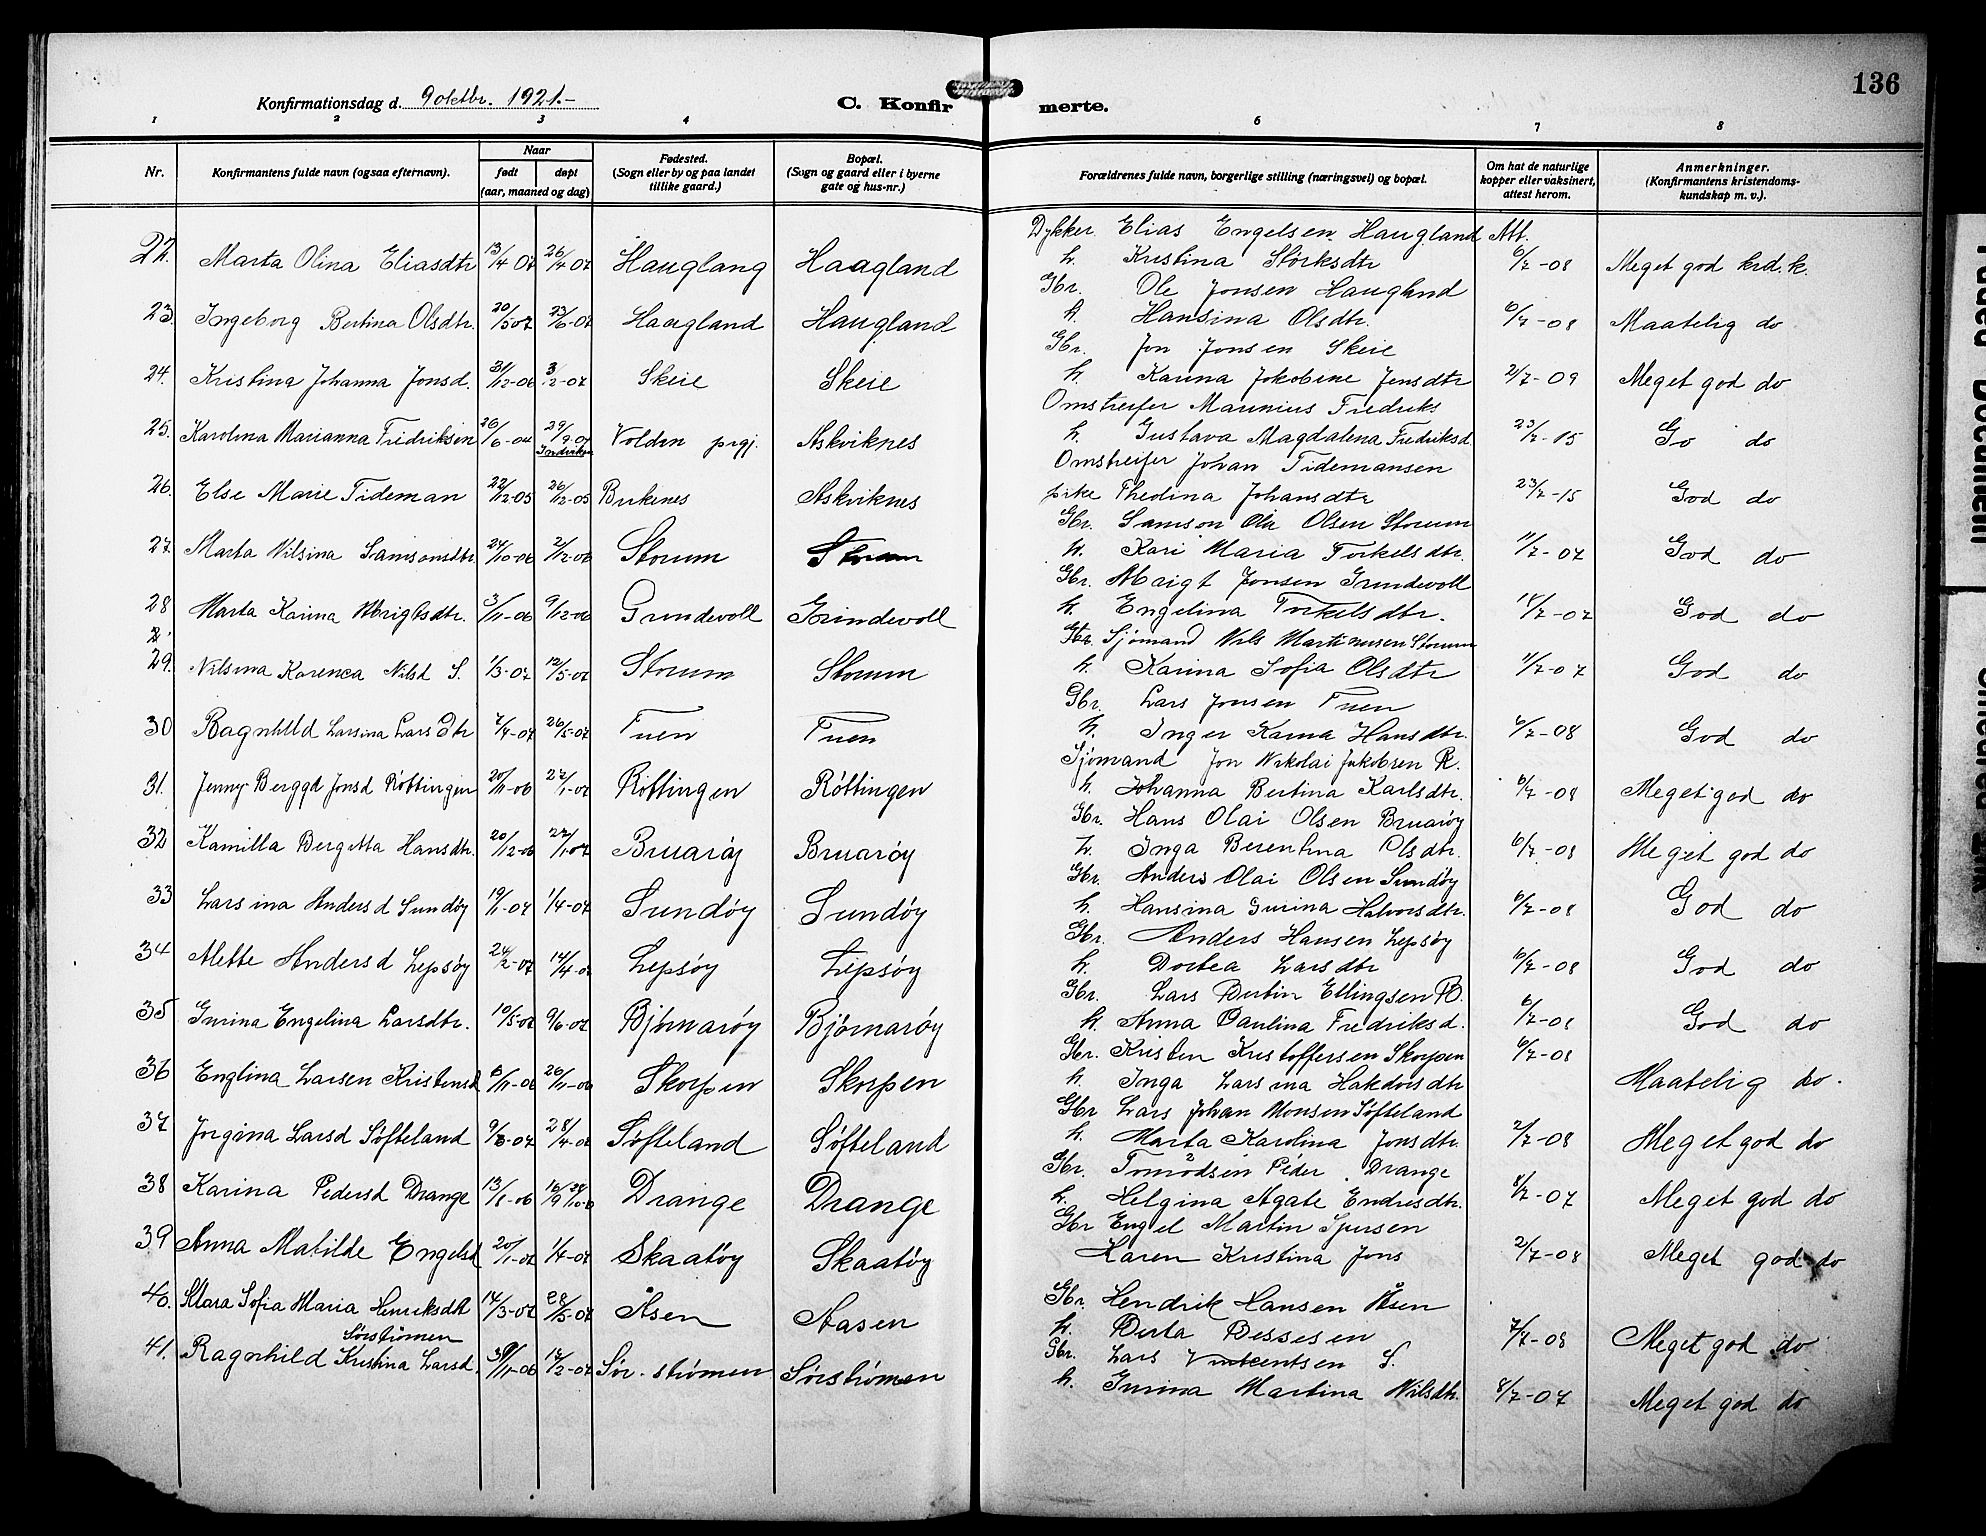 136
Konfirmationsdag d. 9 oktbr. 1921.-
C. Konfirmerte.
1 2 3 4 6 7 8
Nr.
Konfirmantens fulde navn (ogsaa efternavn).
Naar
født døpt
(aar, maaned og dag)
Fødested.
(Sogn eller by og paa landet
tillike gaard.)
Bopæl.
(Sogn og gaard eller i byerne
gate og hus-nr.)
Forældrenes fulde navn, borgerlige stilling (næringsvei) og bopæl.
Om hat de naturlige
kopper eller vaksinert,
attest herom.
Anmerkninger.
(Konfirmantens kristendoms-
kundskap m. v.).
Dykker Elias Engelsen Haugland Att.
22. Marta Olina Eliasdtr 13/4 07 26/4-07 Hauglang Haagland h. Kristina Størksdtr 6/7-08 Meget god krd. k.
Gbr. Ole Jonsen Haugland
23. Ingeborg Bertina Olsdtr. 20/5 07 23/6-07 Haagland Haugland h. Hansina Olsdtr. 6/7-08 Maatelig do
Gbr. Jon Jonsen Skeie
24. Kristina Johanna Jonsd. 31/12-06 3/2-07 Skeie Skeie h. Karina Jakobine Jensdtr 2/7-09 Meget god do
Omstreifer Maurinius Fredriks
25. Karolina Marianna Fridriksen 26/6-04 29/9-04 Volden prgj. Askviknes h. Gustava Magdalena Fredriksd. 23/7-15 Go do
Omstreifer Johan Tidemansen
26. Else Marie Tideman 22/12-05 26/12-05 Birkenes Askviknes pike Thedina Johansdtr 23/7-15 God do
Gbr. Samson Ole Olsen Storum
27. Marta Nilsina Samsonsdtr. 24/10-06 2/12-06 Storum Storum h. Kari Maria Torkelsdtr. 11/7-07 God do
Gbr. Abrigt Jonsen Grindevoll
28 Marta Karina Abrigtsdtr. 3/11-06 9/12-06 Grindevoll Grindevoll h. Engelina Torkelsdtr. 18/7-07 God do
Gbr. Sjømand Nils Martinusen Storum
29. Nilsina Karenea Nilsd S. 1/3-07 12/5-07 Storum Storum h. Karina Sofia Olsdtr 11/7-07 God do
Gbr. Lars Jonsen Tuen
30 Ragnhild Larsina Larsdtr 7/4-07 26/5-07 Tuen Tuen h. Inger Karina Hansdtr. 6/7-08 God do
Sjømand Jon Nikolai Jakobsen R.
31. Jenny Berggd Jonsd Røttingen 20/11-06 27/1-07 Røttingen Røttingen h. Johanna Bertina Karlsdtr. 6/7-08 Meget god do
Gbr. Hans Olai Olsen Bruarøy
32 Kamilla Bergitta Hansdtr. 20/12-06 27/1-07 Bruarøy Bruarøy h. Inga Berentina Olsdtr. 6/7-08 Meget god do
Gbr. Anders Olai Olsen Sundøy
33 Larsina Andersd Sundøy 19/1-07 1/4-07 Sundøy Sundøy h. Hansina Gurina Halvorsdtr. 6/7-08 God do
Gbr. Anders Hansen Lepsøy
34 Mette Andersd Lepsøy 24/2-07 14/4-07 Lepsøy Lepsøy h. Dortea Larsdtr 6/7-08 God do
Gbr. Lars Bertin Ellingsen B.
35 Gurina Engelina Larsdtr. 10/5-07 9/6-07 Bjørnarøy Bjørnarøy h. Anna Paulina Fredriksd. 6/7-08 God do
Gbr. Kristen Kristoffersen Skorpen 6/7-08
36 Englina Larsen Kristensd 6/11-06 26/11-06 Skorpen Skorpen h. Inga Larsina Haktvorsdtr Maatelig do.
Gbr Lars Johan Monsen Søfteland
37 Jorgina Larsd Søfteland 9/3-07 28/4-07 Søfteland Søfteland h. Marta Karolina Jonsdtr. 2/7-08 Meget god do
Gbr. Tomødsen Peder Drange
38 Karina Pedersd Drange 13/8-06 Drange Drange h. Helgina Agate Endresdtr. 8/7-07 Meget god do
Gbr Engel Martin Ipersen
39 Anna Matilde Engelsd 20/1-07 1/4-07 Skaatøy Skaatøy Karen Kristina Jons 2/7-08 Meget god do
Gbr. Hendrik Hansen Åsen
40. Klara Sofia Maria Henriksdt 14/3-07 28/5-07 Åsen Aasen h. Berta Bessesen 7/7-08 Meget god do
Sørstrømen
Gbr. Lars Vinkentsen S.
41. Ragnhild Kristina Larsd. 30/11-06 17/2-07 Sør-strømen Sørstrømen h. Gurina Martina Nilsdtr. 8/7-07 Meget god do